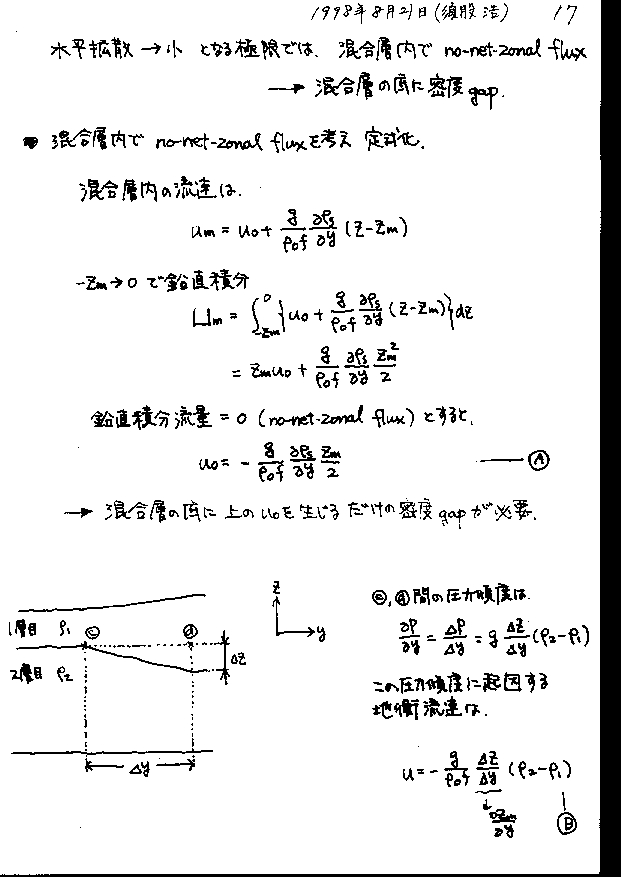 1998年8月21日(須股浩) 17
水平拡散 → 小 となる極限では、混合層内で no-net-zonal flux
→ 混合層の底に密度gap.
混合層内で no-net-zonal fluxを考え 定式化.
混合層内の流速は.
um = uo + g/ρof ∂ρs/∂y (z-zm)
-zm→0で鉛直積分
Um = ∫_{-zm}^{0} {uo + g/ρof ∂ρs/∂y (z-zm)}dz
= zmuo + g/ρof ∂ρs/∂y zm²/2
鉛直積分流量 = 0 (no-net-zonal flux) とすると、
uo = - g/ρof ∂ρs/∂y zm/2 Ⓐ
→ 混合層の底に 上のuoを生じるだけの密度gapが必要.
1層目 ρ1 ⓒ ⓓ
2層目 ρ2
Δz
Δy
z
y
ⓒ,ⓓ間の圧力傾度は.
∂P/∂y = ΔP/Δy = g Δz/Δy (ρ2-ρ1)
この圧力傾度に起因する
地衡流速は.
u = - g/ρof Δz/Δy (ρ2-ρ1)
∂zm/∂y Ⓑ